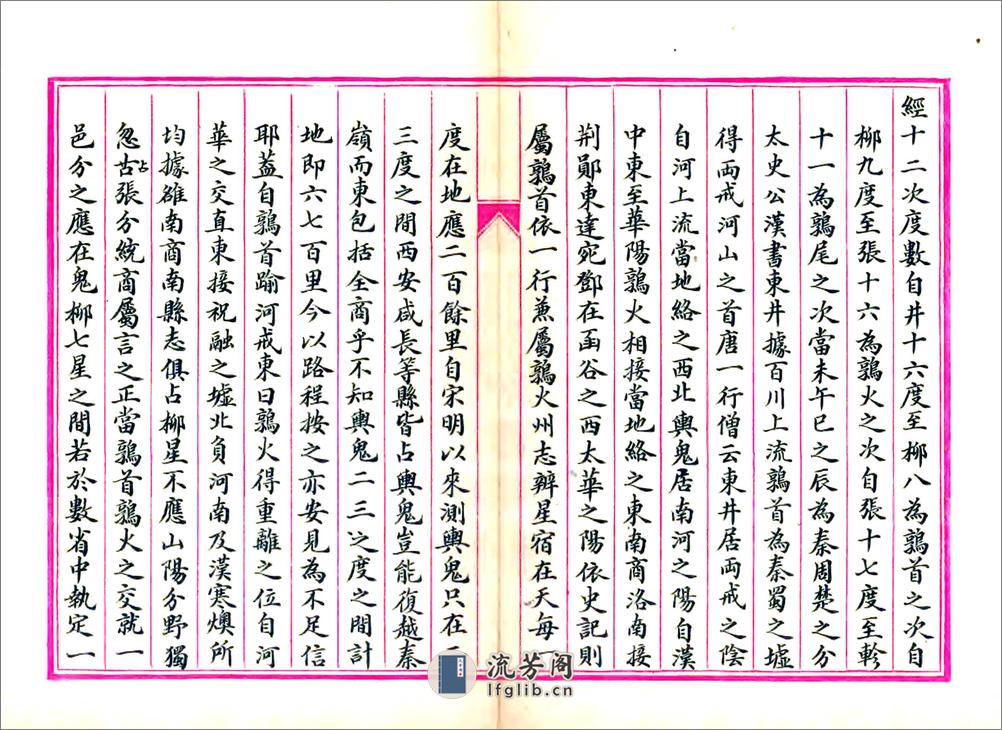 經十二次度數自井十六度至柳八為鶉首之次自
柳九度至張十六為鶉火之次自張十七度至軫
十一為鶉尾之次當未午巳之辰為秦周楚之分
太史公漢書東井據百川上流鶉首為秦蜀之墟
得两戒河山之首唐一行僧云東井居两戒之陰
自河上流當地絡之西北輿鬼居南河之陽自漢
中東至華陽鶉火相接當地絡之東南商洛南接
荆鄖東達宛鄧在函谷之西太華之陽依史記則
屬鶉首依一行兼屬鶉火州志辨星宿在天每
度在地應二百餘里自宋明以來測輿鬼只在二
三度之間西安咸長等縣皆占輿鬼豈能復越秦
嶺而東包括全商乎不知輿鬼二三之度之間計
地即六七百里今以路程按之亦安見為不足信
耶蓋自鶉首踰河戒東曰鶉火得重離之位自河
華之交直東接祝融之墟北負河南及漢寒燠所
均據雒南商南縣志俱占柳星不應山陽分野獨
忽古占張分統商屬言之正當鶉首鶉火之交就一
邑分之應在鬼柳七星之間若於數省中執定一
流芳阁
lfglib.cn